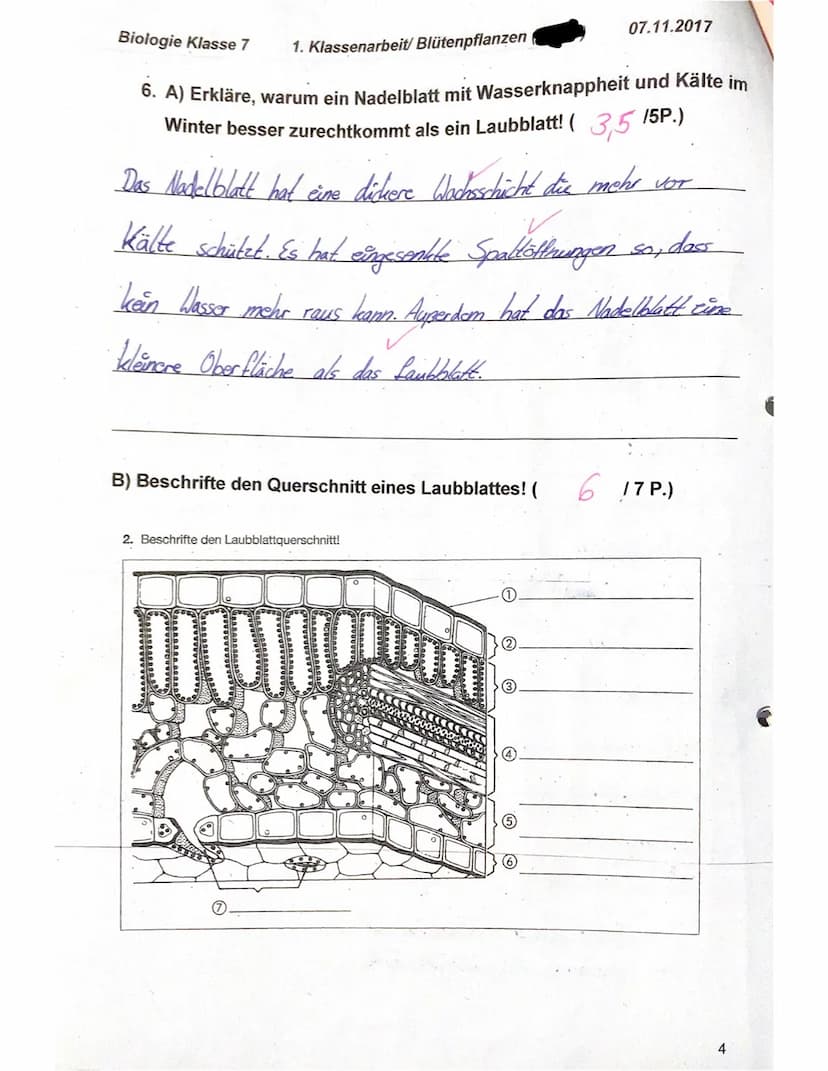 Biologie Klasse 7 1. Klassenarbeit/ Blütenpflanzen 07.11.2017
6. A) Erkläre, warum ein Nadelblatt mit Wasserknappheit und Kälte im
Winter besser zurechtkommt als ein Laubblatt! ( 3,5 /5P.)
Das Nadelblatt hat eine dickere Wachsschicht die mehr vor
Kälte schützt. Es hat eingesenkte Spaltöffnungen so, dass
kein Wasser mehr raus kann. Außerdem hat das Nadelblatt eine
kleinere Oberfläche als das Laubblatt.
B) Beschrifte den Querschnitt eines Laubblattes! ( 6 / 7 P.)
2. Beschrifte den Laubblattquerschnitt!
1
2
3
4
5
6
7
4